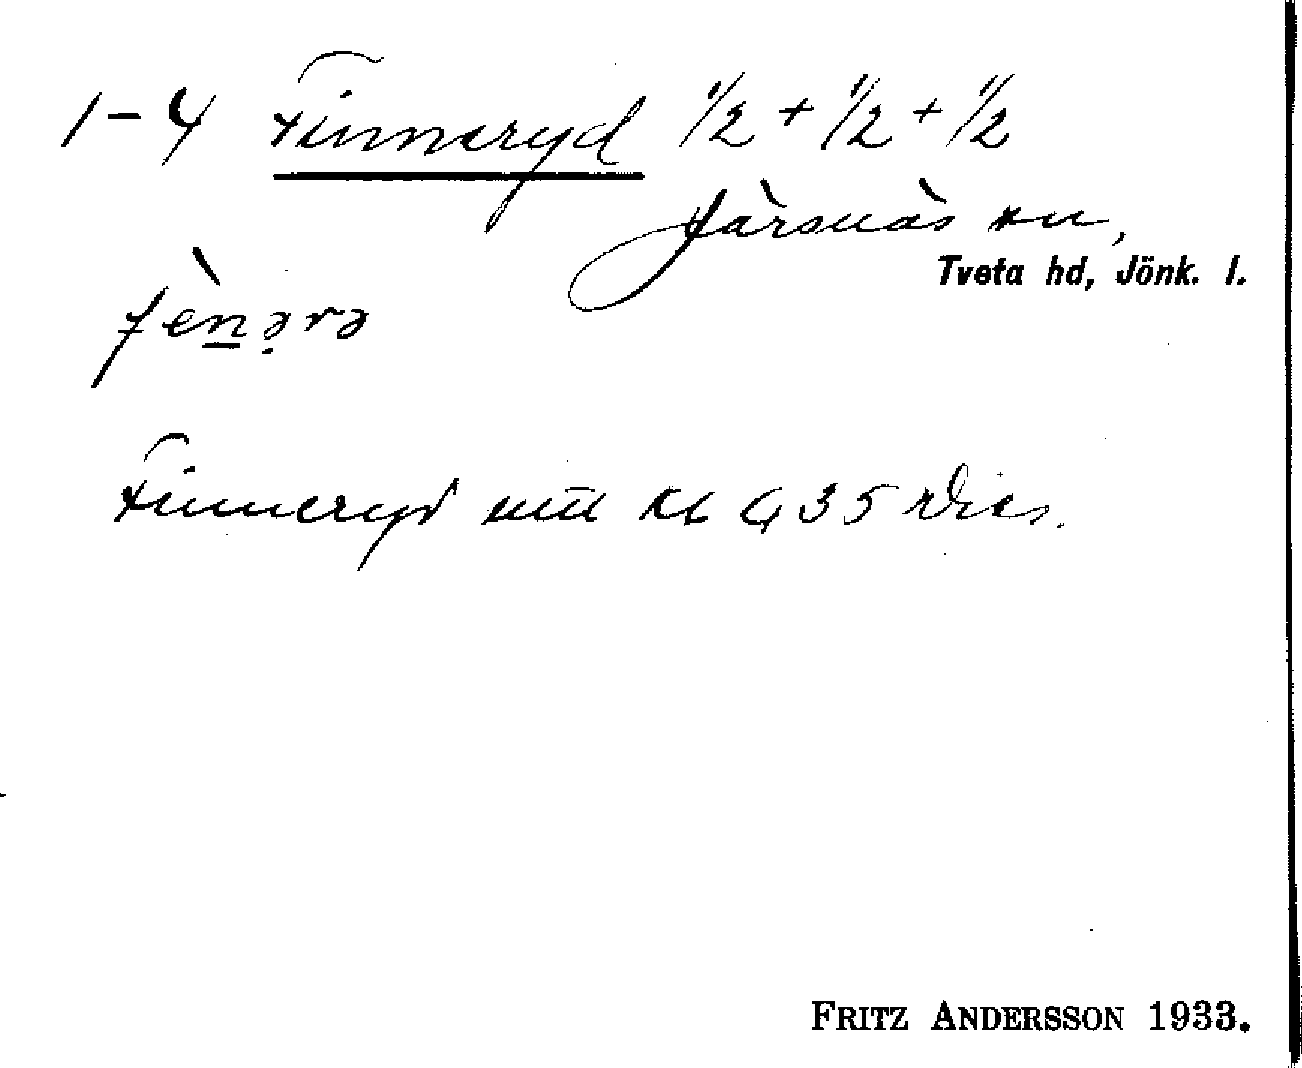 1-4 Finneryd 1/2 + 1/2 + 1/2
Järsnäs sn,
Tveta hd, Jönk. l.
fèn̲ə̣rə
Finneryd
FRITZ ANDERSSON 1933.